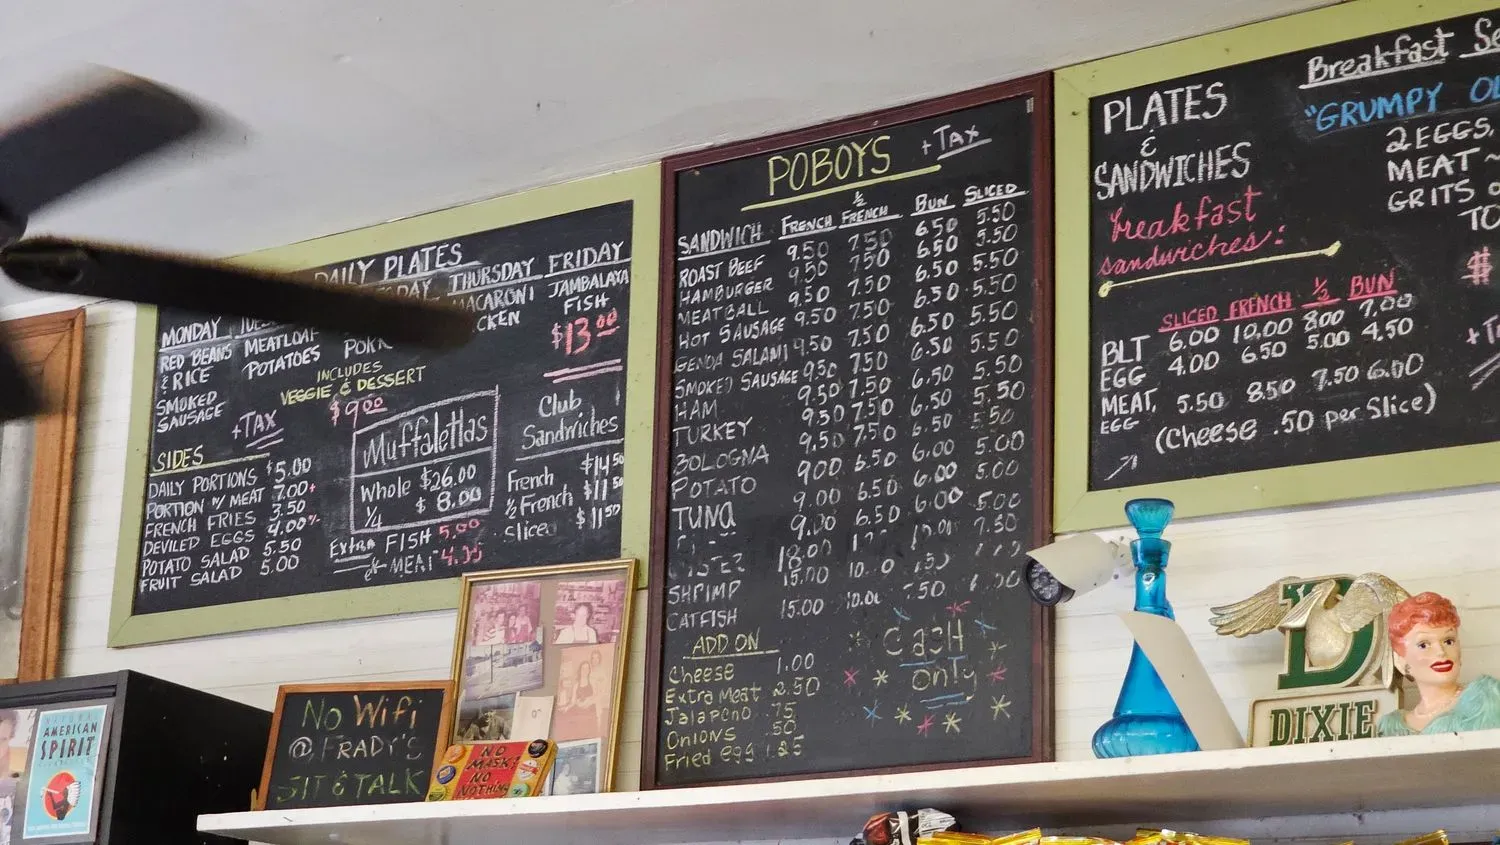 DAILY PLATES
MONDAY
THURSDAY
FRIDAY
RED BEANS
& RICE
SMOKED
SAUSAGE
MEATLOAF
POTATOES
MACARONI
JAMBALAYA
FISH
$13.00
INCLUDES
VEGGIE & DESSERT
$9.00
+TAX
SIDES
DAILY PORTIONS $5.00
PORTION W/ MEAT 7.00+
FRENCH FRIES 3.50
DEVILED EGGS
POTATO SALAD 5.50
FRUIT SALAD 5.00
Muffalettas
Whole $26.00
1/4 $8.00
Extra FISH 5.00
& MEAT
Club
Sandwiches
French $14.50
1/2 French $11.50
Sliced $11.50
POBOYS +TAX
SANDWICH FRENCH 1/2 FRENCH BUN SLICED
ROAST BEEF 9.50 7.50 6.50 5.50
HAMBURGER 9.50 7.50 6.50 5.50
MEATBALL 9.50 7.50 6.50 5.50
HOT SAUSAGE 9.50 7.50 6.50 5.50
GENOA SALAMI 9.50 7.50 6.50 5.50
SMOKED SAUSAGE 9.50 7.50 6.50 5.50
HAM 9.50 7.50 6.50 5.50
TURKEY 9.50 7.50 6.50 5.50
BOLOGNA 9.50 7.50 6.50 5.50
POTATO 9.00 6.50 6.00 5.00
TUNA 9.00 6.50 6.00 5.00
9.00 6.50 6.00 5.00
18.00 7.50
SHRIMP 15.00
CATFISH 15.00 10.00 7.50
ADD ON
Cheese 1.00
Extra Meat 2.50
Jalapeno .75
Onions .50
Fried egg 1.25
Cash
only
PLATES
&
SANDWICHES
breakfast
sandwiches:
SLICED FRENCH 1/2 BUN
BLT 6.00 10.00 8.00 7.00
EGG 4.00 6.50 5.00 4.50
MEAT, EGG 5.50 8.50 7.50 6.00
(Cheese .50 per Slice)
Breakfast
"GRUMPY
2 EGGS,
MEAT~
GRITS
$
NO WiFi
@ FRADY'S
SIT & TALK
NO
MASK?
NO
NOTHING
NATURAL
AMERICAN
SPIRIT
D
DIXIE